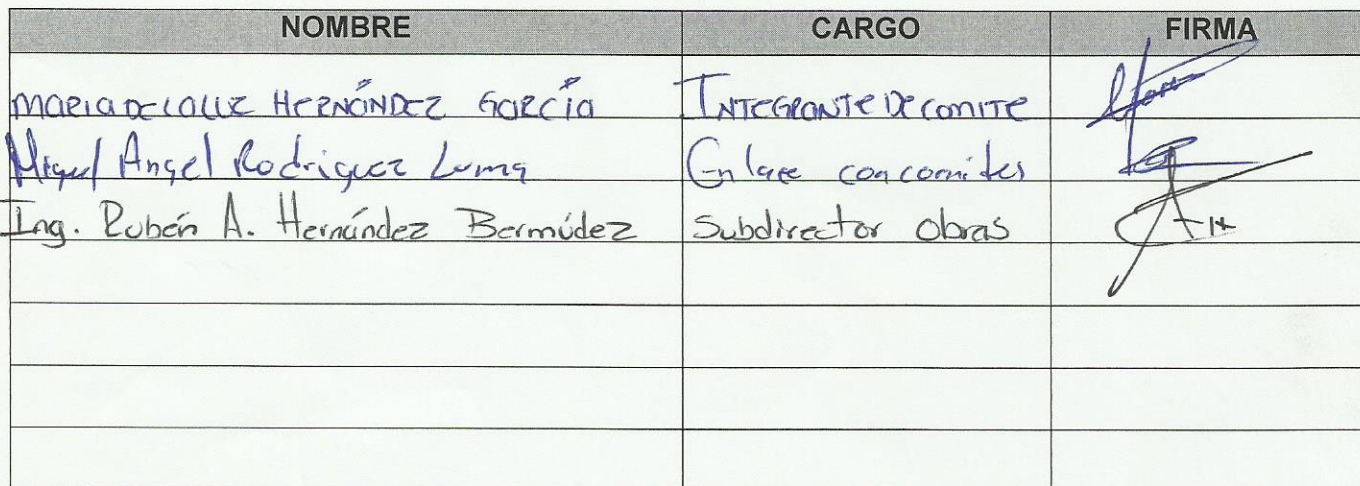 NOMBRE CARGO FIRMA
MARIA DE LA LUZ HERNÁNDEZ GARCÍA INTEGRANTE DE COMITE
Miguel Angel Rodriguez Luna Enlace con comites
Ing. Rubén A. Hernández Bermúdez Subdirector Obras